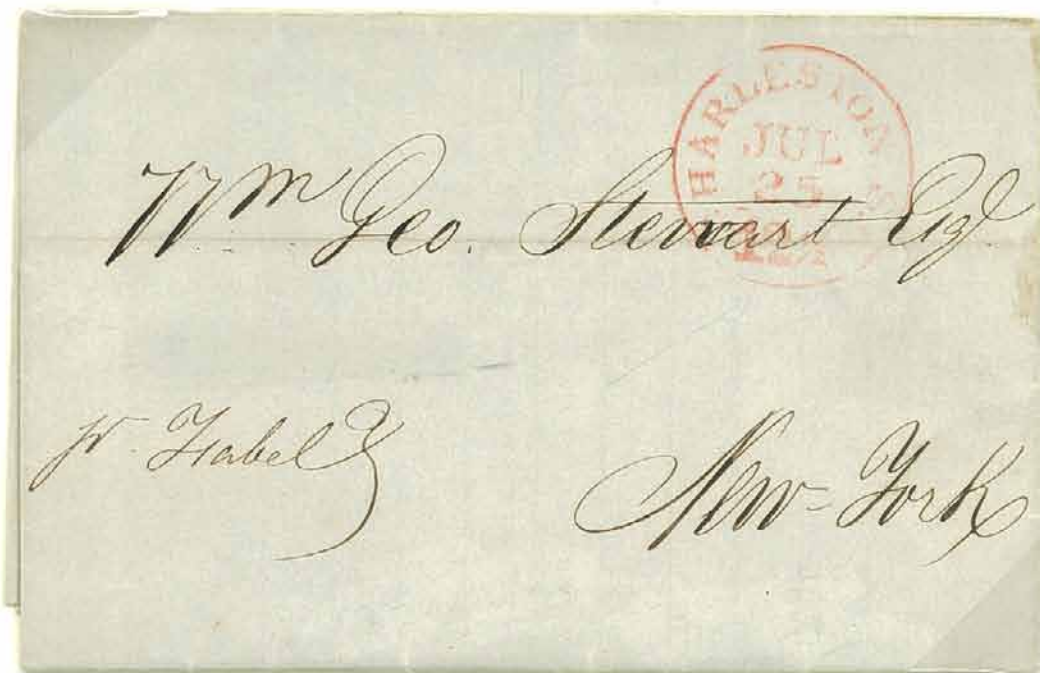 CHARLESTON S.C.
JUL
25
Wm Geo. Stewart Esqr
pr. Isabel
New-York